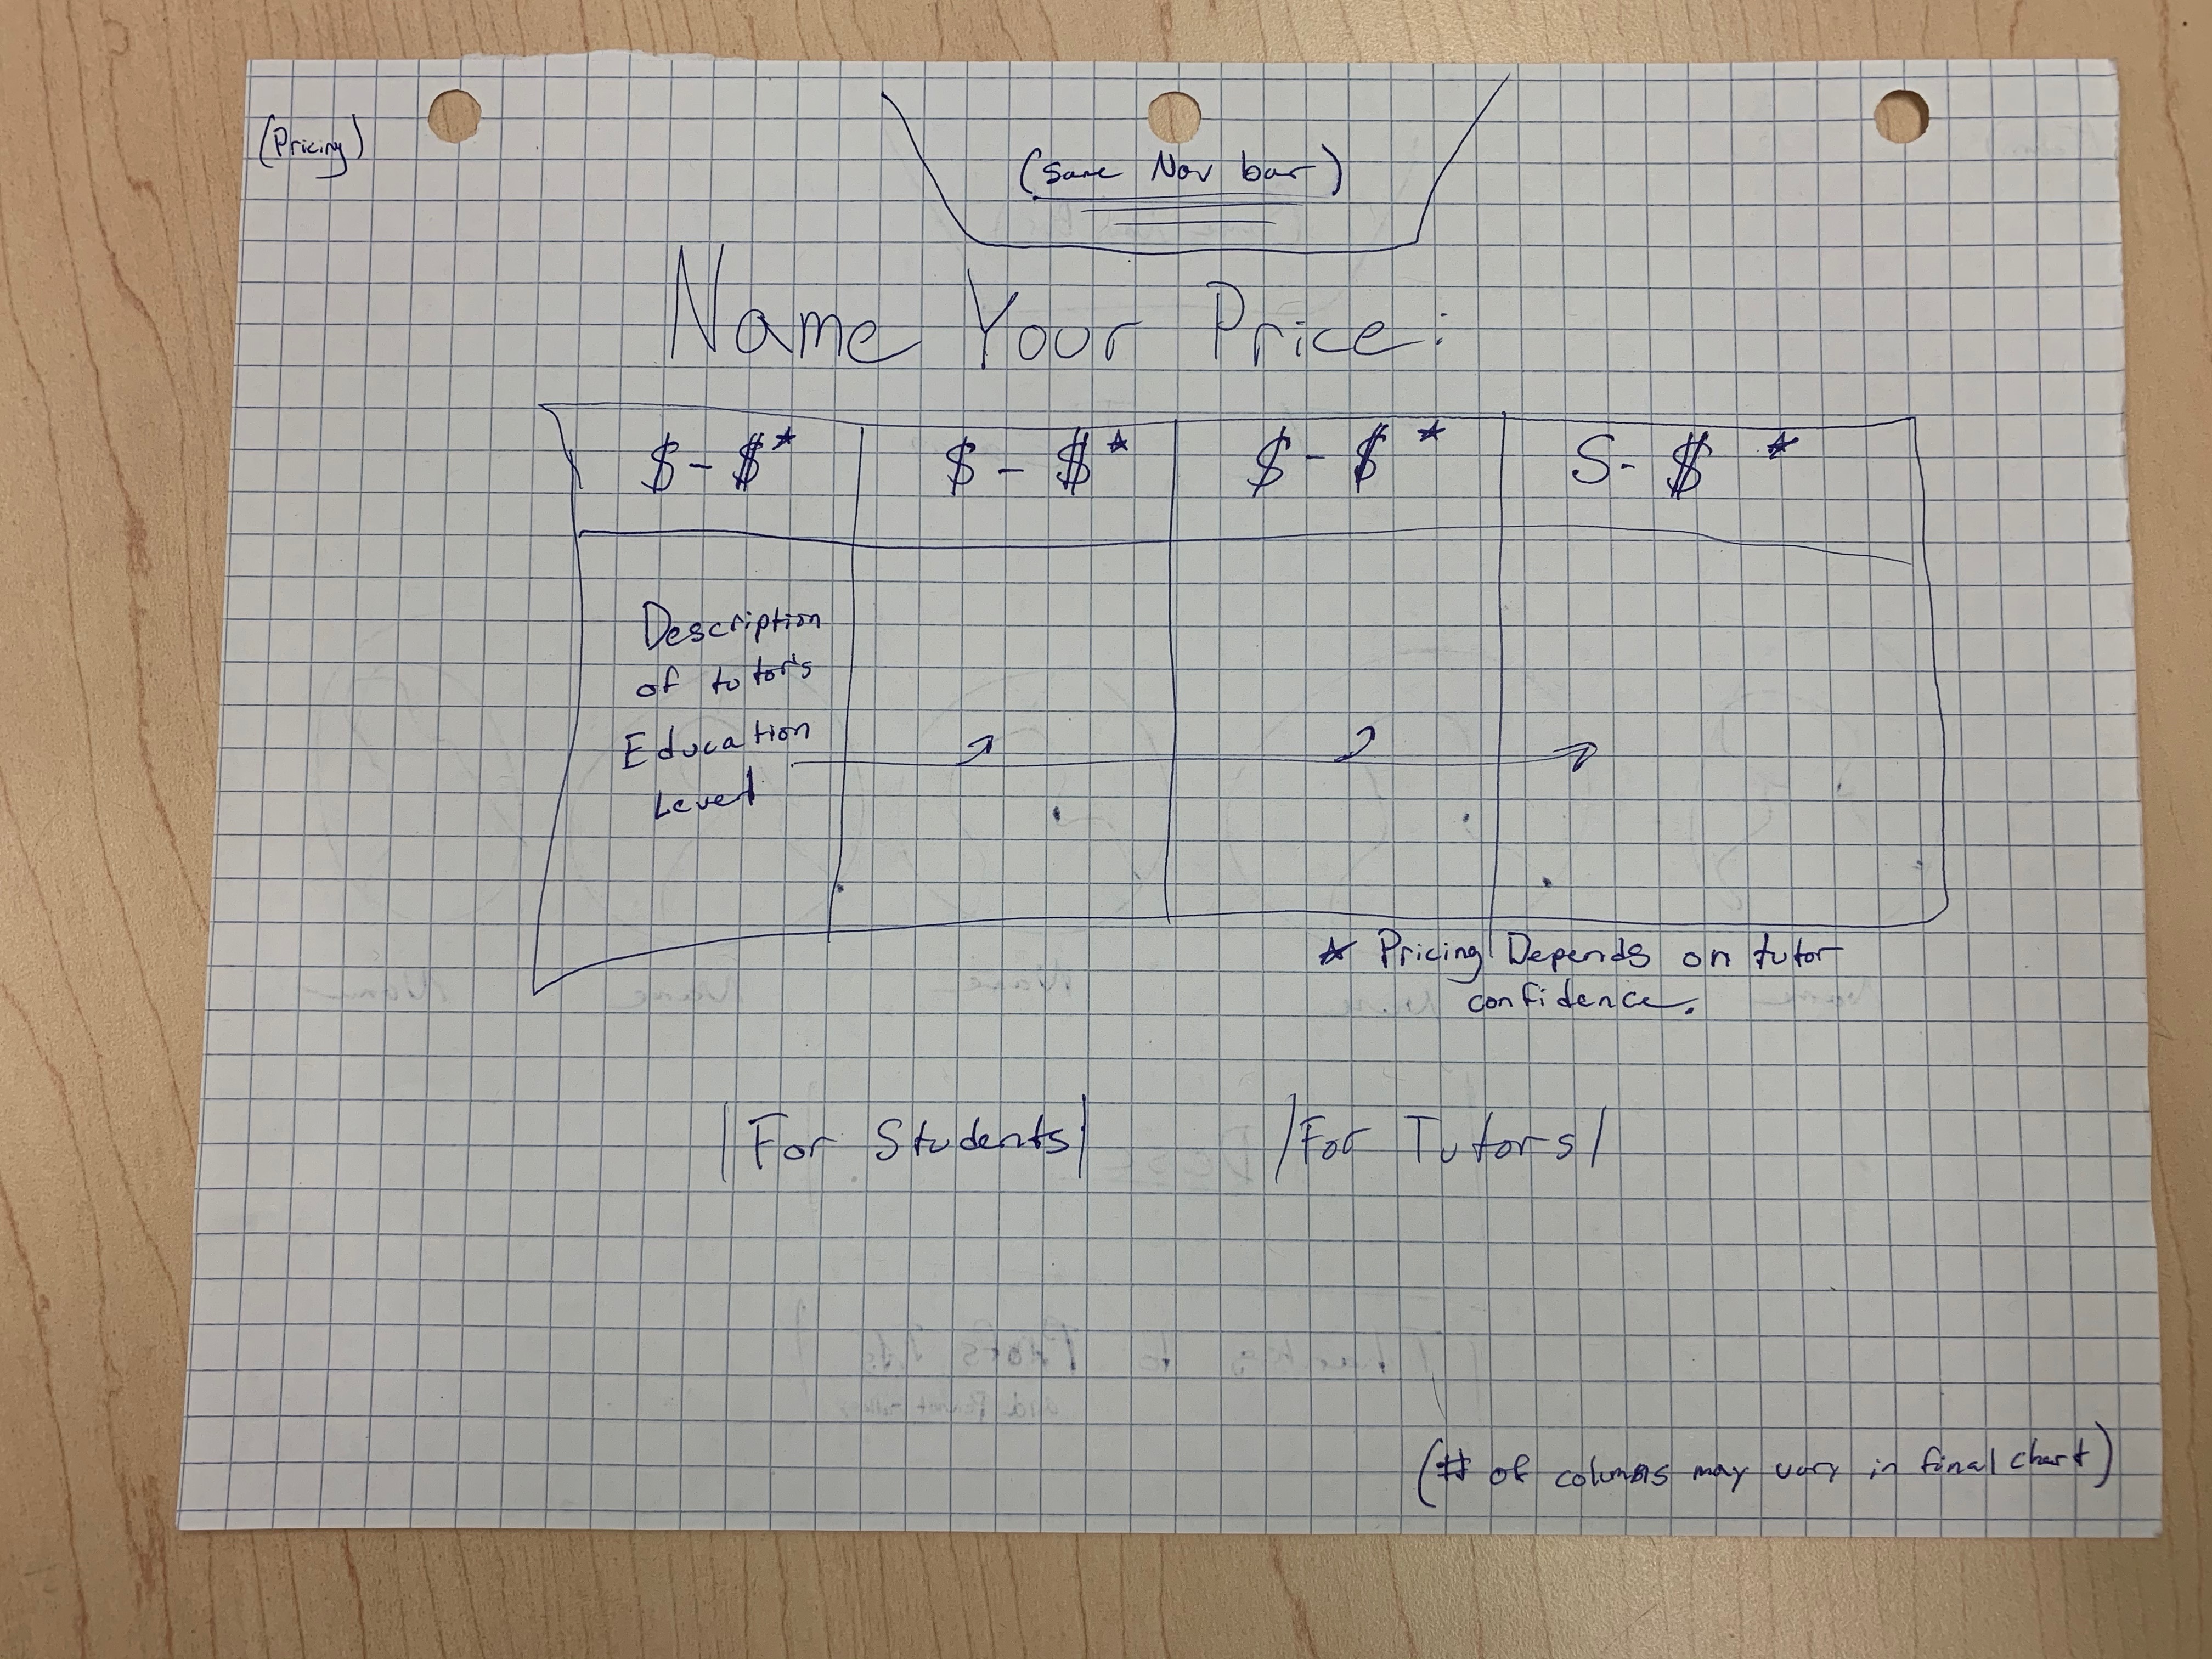 (Pricing)
(Same Nav bar)
Name Your Price:
$ - $* $ - $* $ - $* S - $*
Description
of tutor's
Education
Level
* Pricing Depends on tutor
confidence.
|For Students| /For Tutors/
(# of columns may vary in final chart)